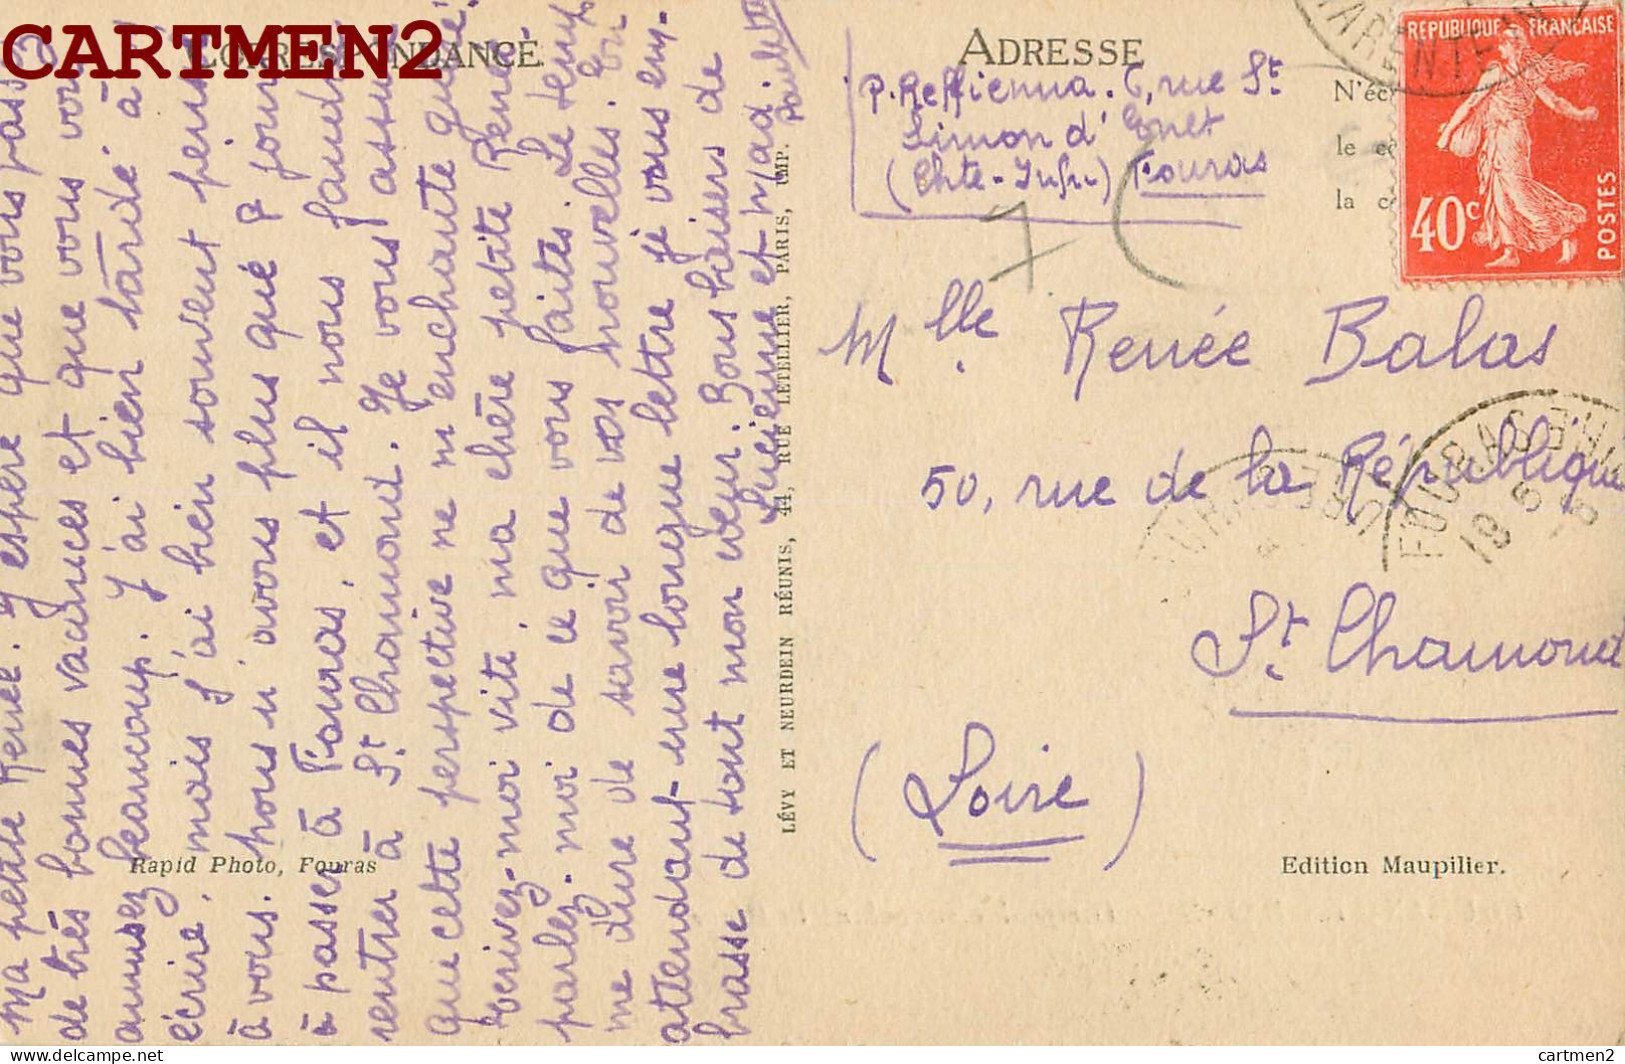 CARTMEN2
CORRESPONDANCE
Ma petite Renée. J'espère que vous passez
de très bonnes vacances et que vous vous
amusez beaucoup. J'ai bien tardé à
écrire, mais j'ai bien souvent pensé
à vous. Nous n'avons plus que 8 jours
à passer à Fouras, et il nous faudra
rentrer à St Chamond. Je vous assure
que cette perspective ne m'enchante guère.
Ecrivez-moi vite, ma chère petite Renée
parlez-moi de ce que vous faites. Le temps
me dure de savoir de vos nouvelles. En
attendant une longue lettre je vous em-
brasse de tout mon cœur. Bons baisers de
Lucienne et Mad.
Paulette
LÉVY ET NEURDEIN RÉUNIS, 44, RUE LETELLIER, PARIS, IMP.
Rapid Photo, Fouras
ADRESSE
P. Reffienna. 6, rue St
Simon d'
(Chte-Infre) Fouras
N'éc
le c
la c
RÉPUBLIQUE FRANÇAISE
40c
POSTES
7
Mlle Renée Balas
50, rue de la République
FOURAS
19
St Chamond
(Loire)
Edition Maupilier.
delcampe.net
cartmen2